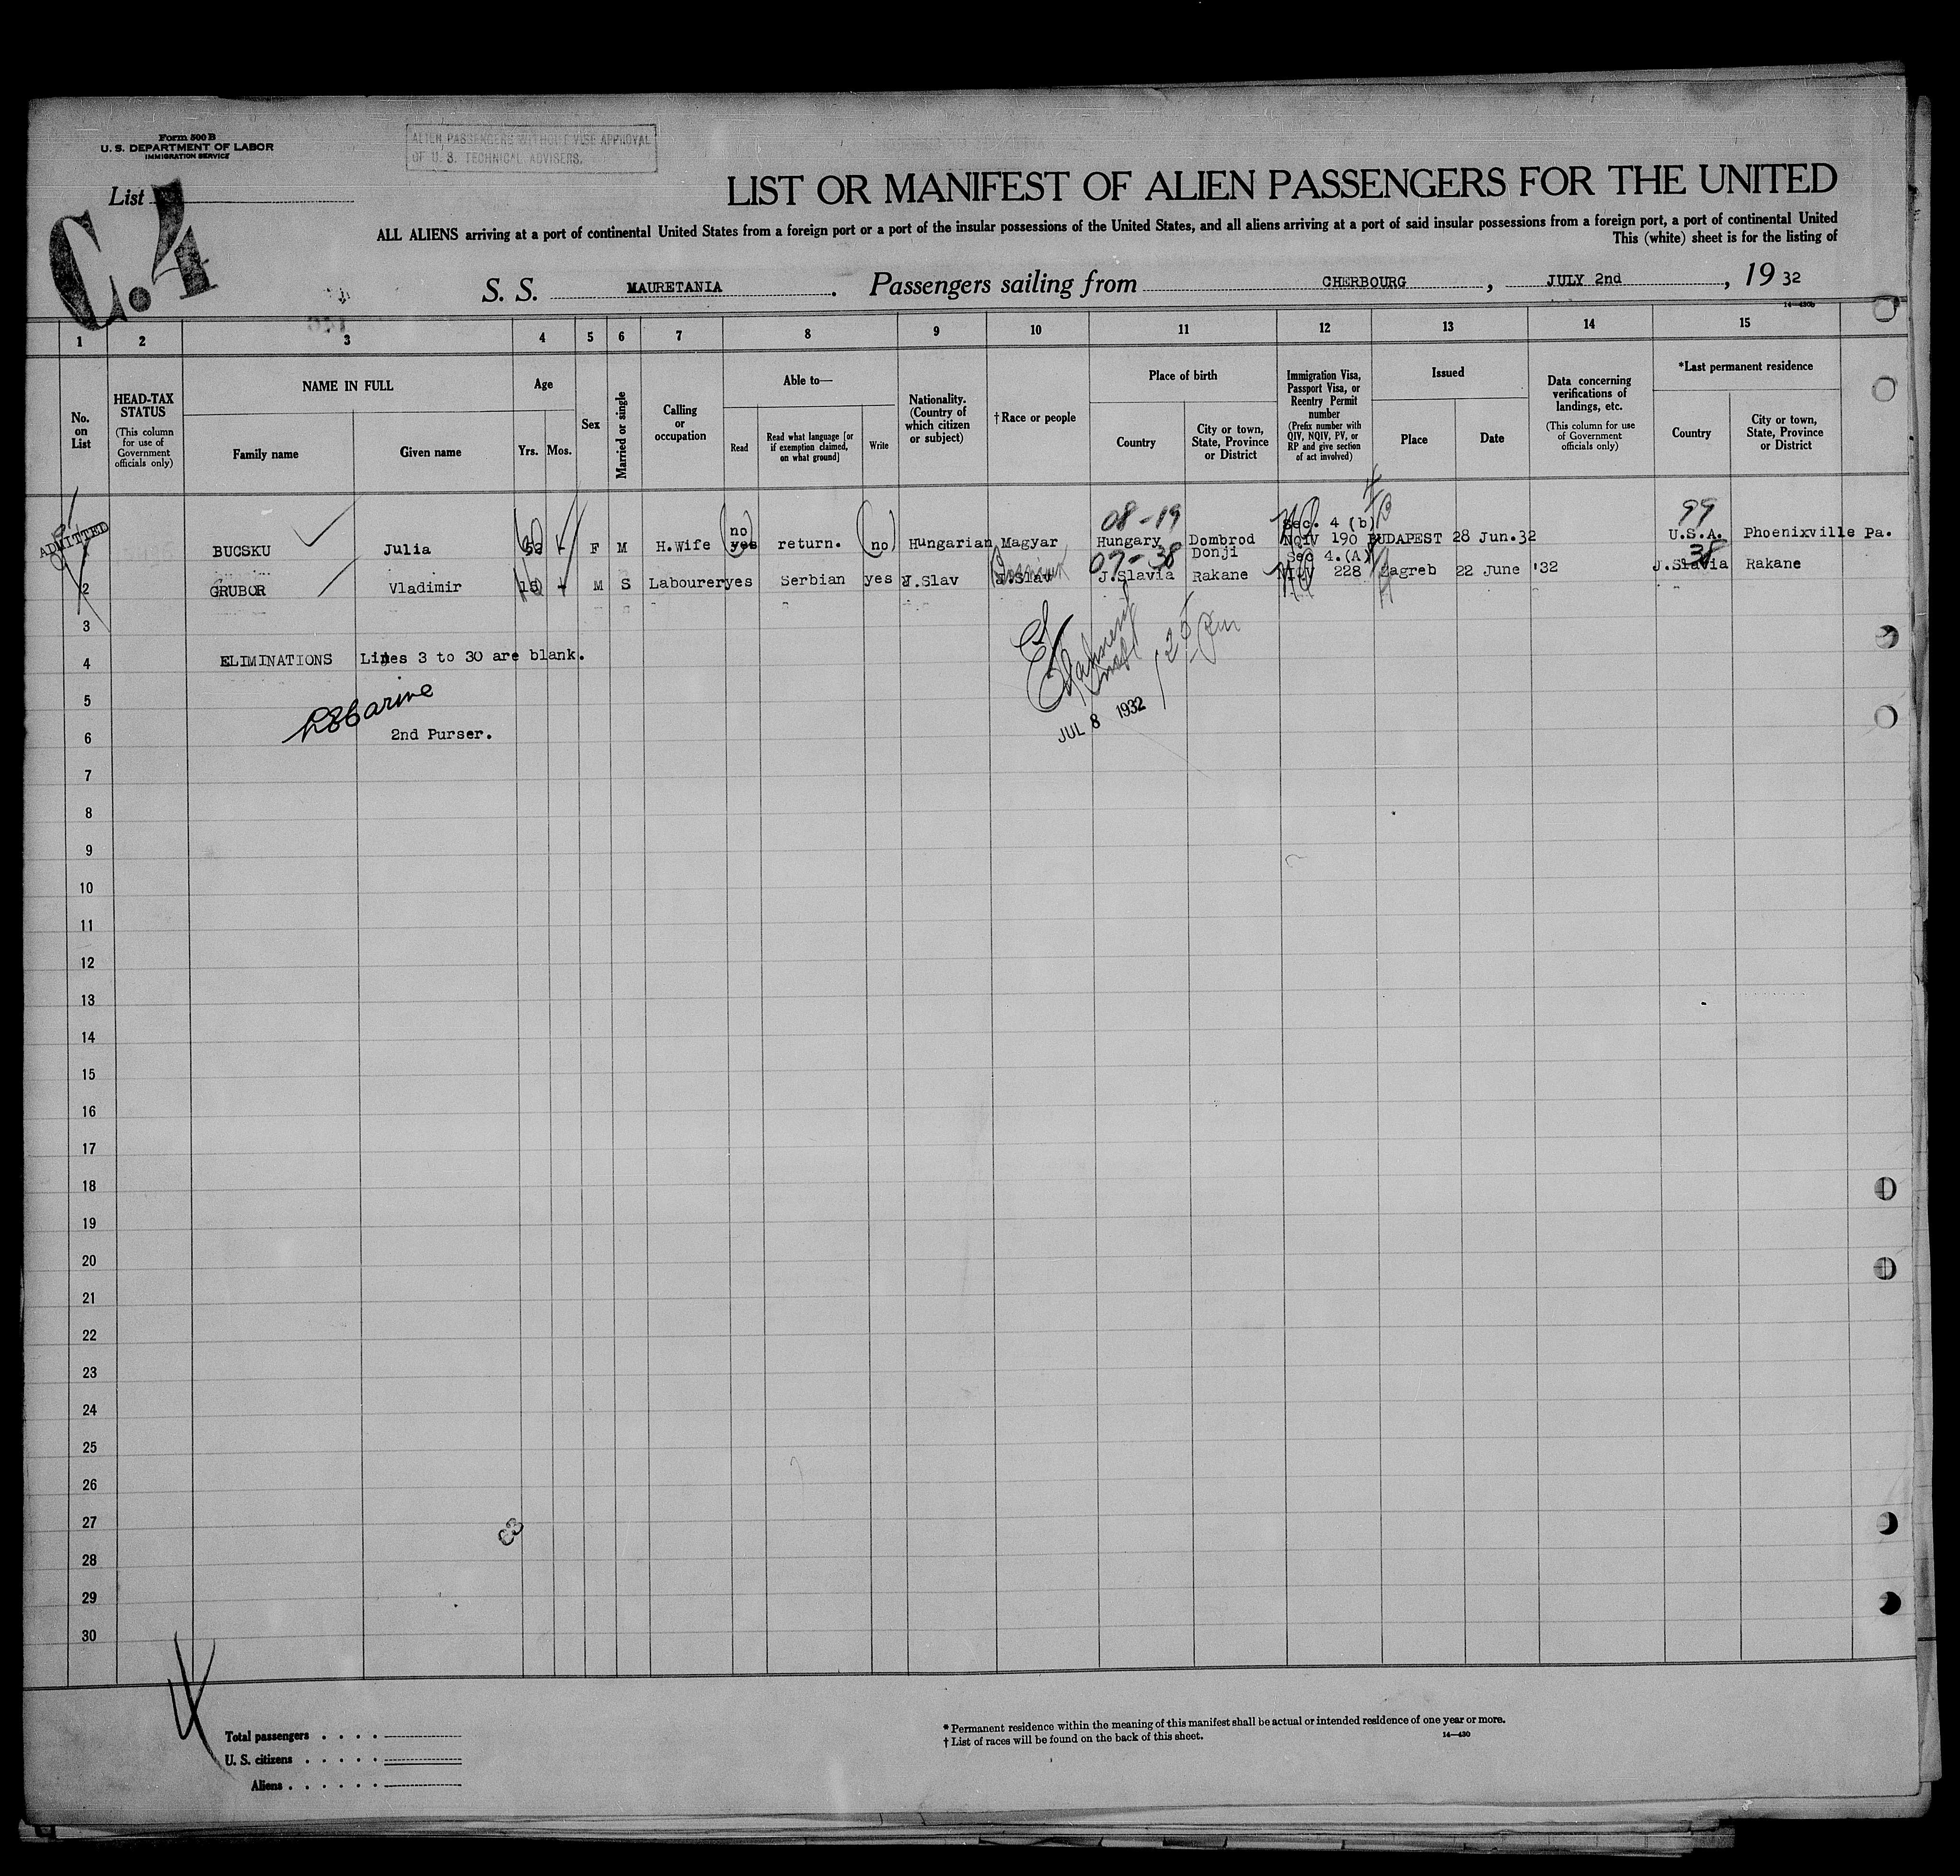 Form 500 B
U. S. DEPARTMENT OF LABOR
IMMIGRATION SERVICE
ALIEN PASSENGERS WITHOUT VISE APPROVAL
OF U. S. TECHNICAL ADVISERS.
List
C.4
LIST OR MANIFEST OF ALIEN PASSENGERS FOR THE UNITED
ALL ALIENS arriving at a port of continental United States from a foreign port or a port of the insular possessions of the United States, and all aliens arriving at a port of said insular possessions from a foreign port, a port of continental United
This (white) sheet is for the listing of
S. S. MAURETANIA . Passengers sailing from CHERBOURG , JULY 2nd , 19 32
14—430b
1 2 3 4 5 6 7 8 9 10 11 12 13 14 15
No. on List
HEAD-TAX STATUS
(This column for use of Government officials only)
NAME IN FULL
Family name
Given name
Age
Yrs.
Mos.
Sex
Married or single
Calling or occupation
Able to—
Read
Read what language [or if exemption claimed, on what ground]
Write
Nationality. (Country of which citizen or subject)
†Race or people
Place of birth
Country
City or town, State, Province or District
Immigration Visa, Passport Visa, or Reentry Permit number
(Prefix number with QIV, NQIV, PV, or RP and give section of act involved)
Issued
Place
Date
Data concerning verifications of landings, etc.
(This column for use of Government officials only)
*Last permanent residence
Country
City or town, State, Province or District
ADMITTED
08-19
99
no
Sec. 4 (b)
1 BUCSKU Julia F M H.Wife yes return. no Hungarian Magyar Hungary Dombrod NQIV 190 BUDAPEST 28 Jun.32 U.S.A. Phoenixville Pa.
07-38
Donji
Sec 4.(A)
38
2 GRUBOR Vladimir M S Labourer yes Serbian yes J.Slav J.Slav J.Slavia Rakane 228 Zagreb 22 June '32 J.Slavia Rakane
3
4 ELIMINATIONS Lines 3 to 30 are blank.
5
6 2nd Purser.
JUL 8 1932
7
8
9
10
11
12
13
14
15
16
17
18
19
20
21
22
23
24
25
26
27
28
29
30
Total passengers
U. S. citizens
Aliens
* Permanent residence within the meaning of this manifest shall be actual or intended residence of one year or more.
† List of races will be found on the back of this sheet.
14—430